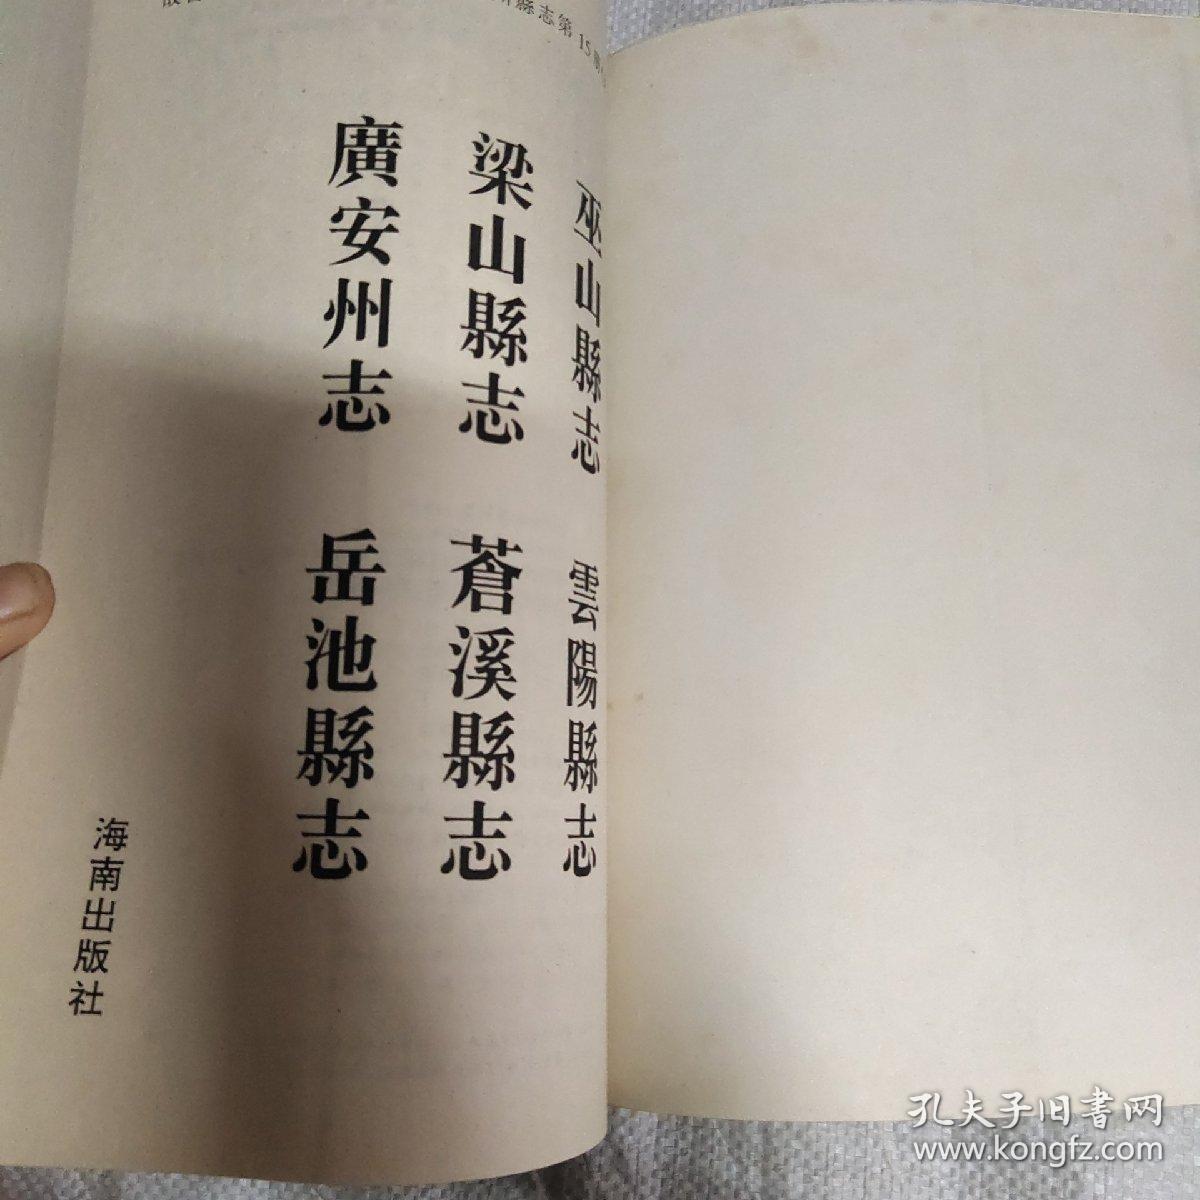 縣志第15
巫山縣志 雲陽縣志
梁山縣志 蒼溪縣志
廣安州志 岳池縣志
海南出版社
孔夫子旧书网
www.kongfz.com